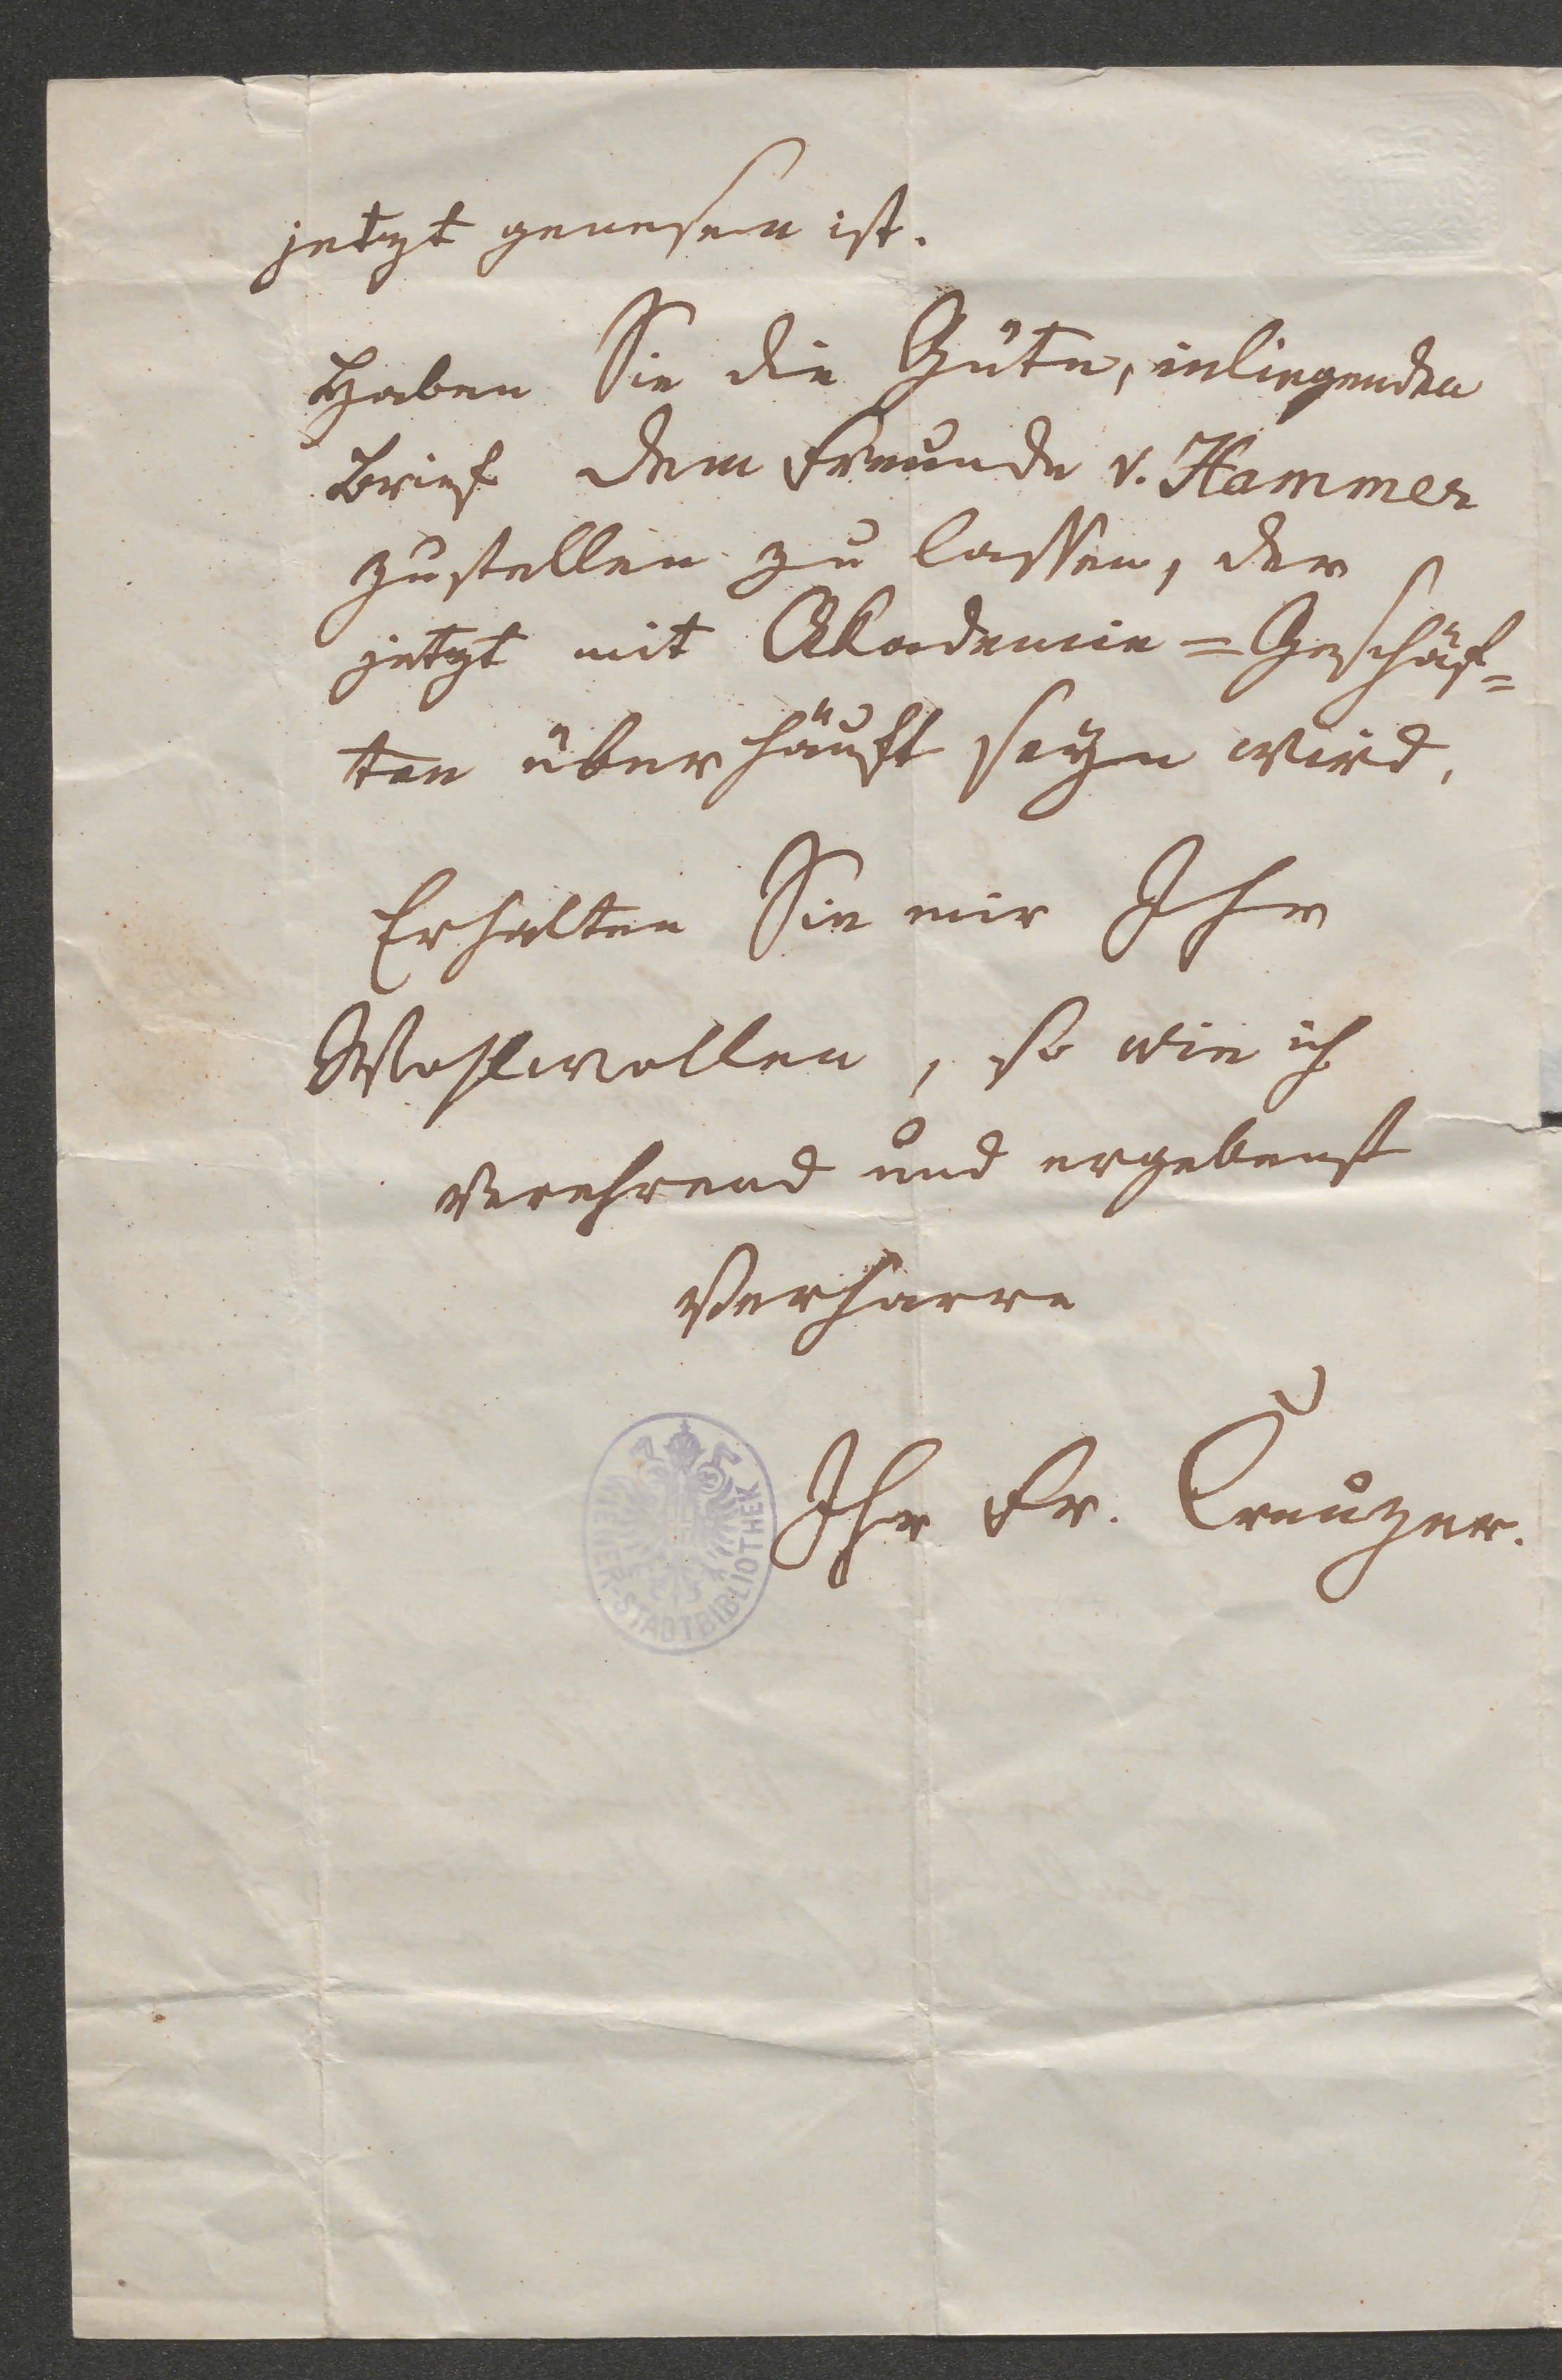 jetzt genesen ist.
Haben Sie die Güte, inliegenden
Brief dem Freunde v. Hammer
zustellen zu lassen, der
jetzt mit Akademie=Geschäf=
ten überhäuft seyn wird.
Erhalten Sie mir Ihr
Wohlwollen, so wie ich
verehrend und ergebenst
verharre
Ihr Fr. Creuzer.
WIENER STADTBIBLIOTHEK